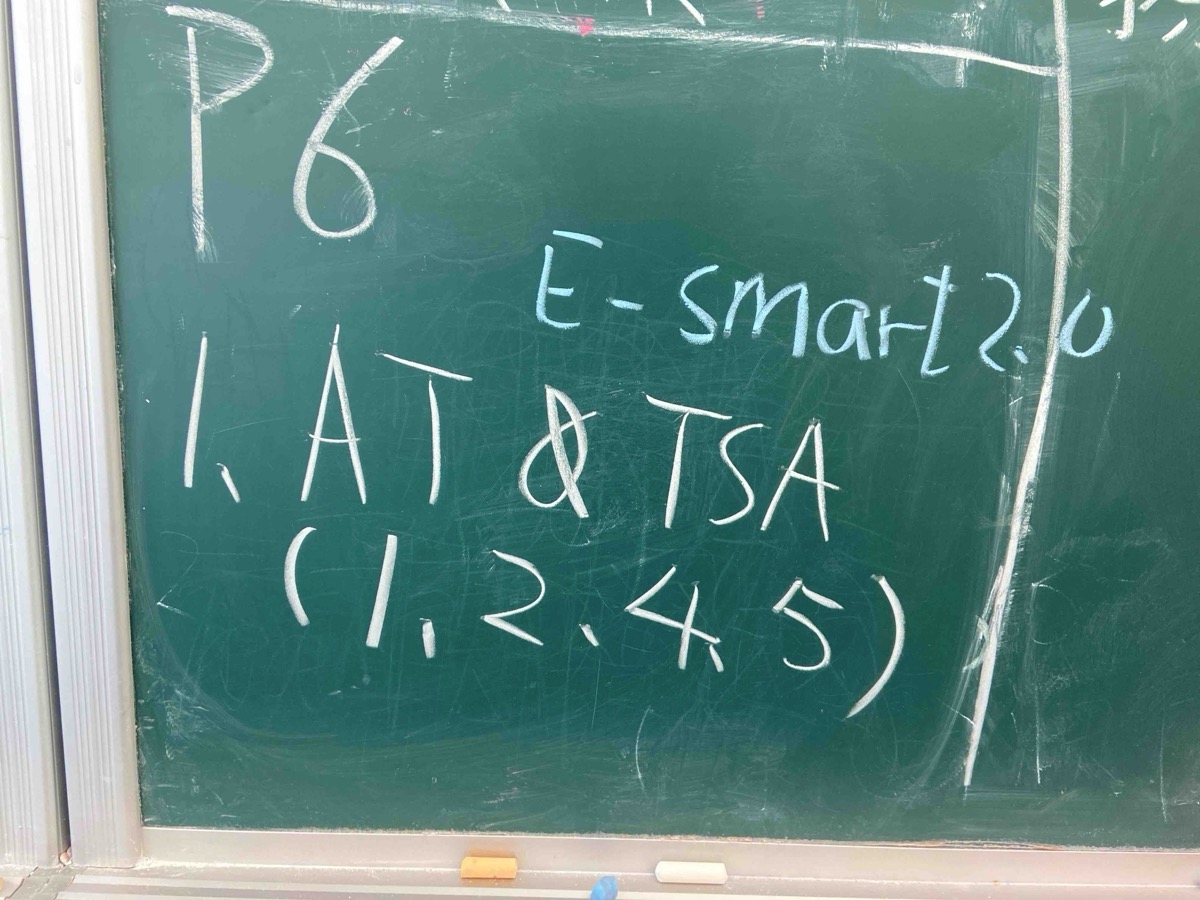 P6
E-smart 2.0
1, AT & TSA
(1, 2, 4, 5)